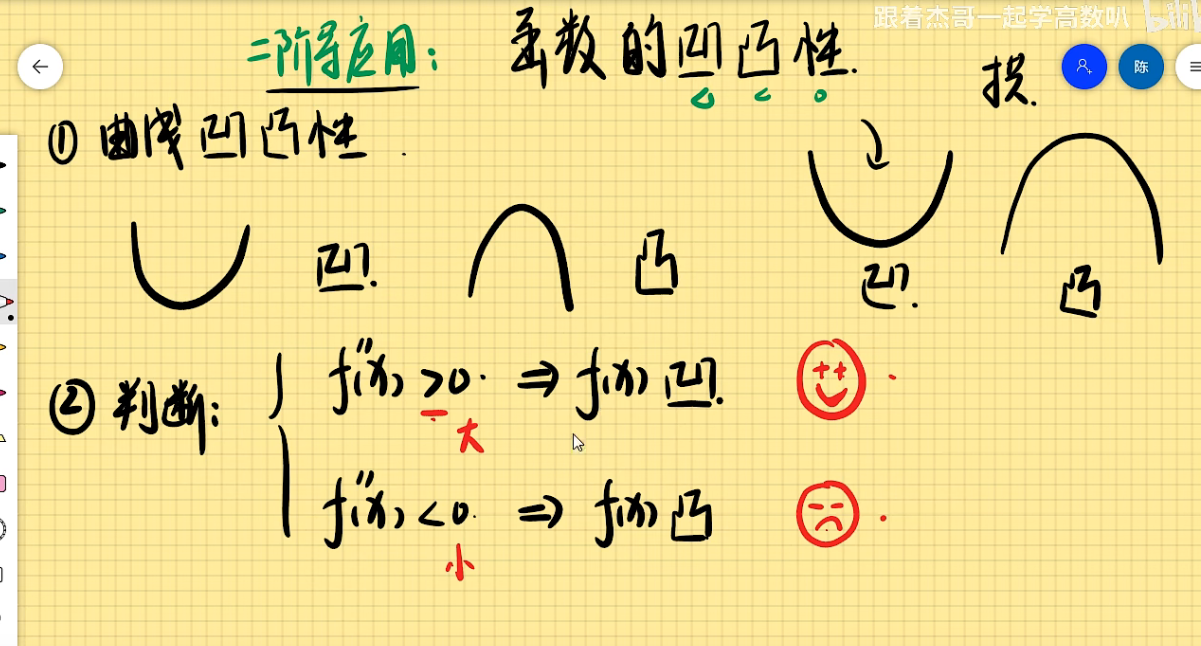 跟着杰哥一起学高数叭 bilibili
二阶导应用: 函数的凹凸性.
拱.
陈
① 曲线凹凸性.
凹. 凸 凹. 凸
② 判断: f''(x) >0. ⇒ f(x) 凹. ++
大
f''(x) <0. ⇒ f(x) 凸
小